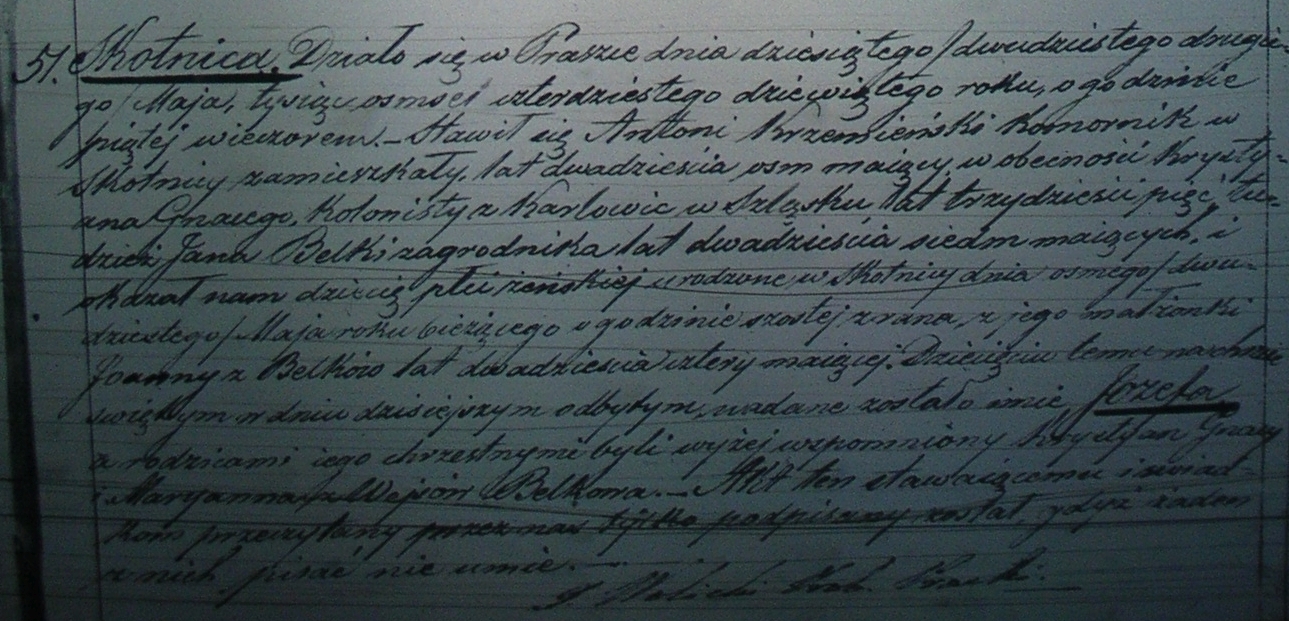 51. Skotnica. Działo się w Praszce dnia dziesiątego / dwudziestego drugie-
go / Maja, tysiąc osmset czterdziestego dziewiątego roku, o godzinie
piątej wieczorem. – Stawił się Antoni Krzemieński Komornik w
Skotnicy zamieszkały, lat dwadzieścia osm maiący, w obecności Kryszty-
ana Gnacego, Kolonisty z Karłowic w Szląsku lat trzydzieści pięć, tu-
dzież Jana Belki zagrodnika lat dwadzieścia siedm maiących, i
okazał nam dziecię płci żeńskiej urodzone w Skotnicy dnia osmego / dwu-
dziestego / Maja roku bieżącego o godzinie szostej z rana, z jego małżonki
Joanny z Belków lat dwadzieścia cztery maiącej. Dziecięciu temu na chrzcie
świętym w dniu dzisiejszym odbytym, nadane zostało imię Józefa,
a rodzicami iego chrzestnymi byli wyżej wspomniony Krystyan Gnacy
i Maryanna z Belkowa. – Akt ten stawaiącemu i świad-
kom przeczytany przez nas tylko podpisany został, gdyż żaden
z nich pisać nie umie. –